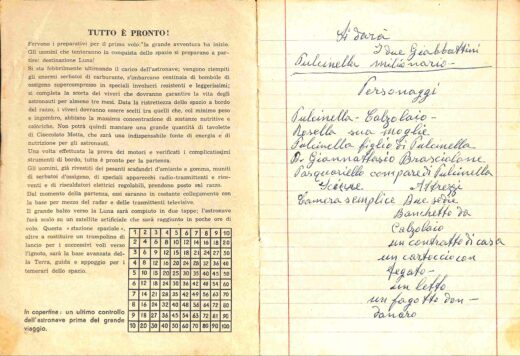 TUTTO È PRONTO!
Fervono i preparativi per il primo volo: la grande avventura ha inizio.
Gli uomini che tenteranno la conquista dello spazio si preparano a par-
tire: destinazione Luna!
Si sta febbrilmente ultimando il carico dell'astronave; vengono riempiti
gli enormi serbatoi di carburante, s'imbarcano centinaia di bombole di
ossigeno supercompresso in speciali involucri resistenti e leggerissimi;
si completa la scorta dei viveri che dovranno garantire la vita degli
astronauti per almeno tre mesi. Data la ristrettezza dello spazio a bordo
del razzo, i viveri dovranno essere scelti tra quelli che, col minimo peso
e ingombro, abbiano la massima concentrazione di sostanze nutritive e
caloriche. Non potrà quindi mancare una grande quantità di tavolette
di Cioccolato Motta, che sarà una indispensabile fonte di energia e di
nutrizione per gli astronauti.
Una volta effettuata la prova dei motori e verificati i complicatissimi
strumenti di bordo, tutto è pronto per la partenza.
Gli uomini, già rivestiti dei pesanti scafandri d'amianto e gomma, muniti
di serbatoi d'ossigeno, di speciali apparecchi radio-trasmittenti e rice-
venti e di riscaldatori elettrici regolabili, prendono posto sul razzo.
Dal momento della partenza, essi saranno in costante collegamento con
la base per mezzo del radar e delle trasmittenti televisive.
Il grande balzo verso la Luna sarà compiuto in due tappe; l'astronave
farà scalo su un satellite artificiale che sarà raggiunto in poche ore di
volo. Questa «stazione spaziale»,
oltre a costituire un trampolino di
lancio per i successivi voli verso
l'ignoto, sarà la base avanzata del-
la Terra, guida e appoggio per i
temerari dello spazio.
In copertina: un ultimo controllo
dell'astronave prima del grande
viaggio.
1 2 3 4 5 6 7 8 9 10
2 4 6 8 10 12 14 16 18 20
3 6 9 12 15 18 21 24 27 30
4 8 12 16 20 24 28 32 36 40
5 10 15 20 25 30 35 40 45 50
6 12 18 24 30 36 42 48 54 60
7 14 21 28 35 42 49 56 63 70
8 16 24 32 40 48 56 64 72 80
9 18 27 36 45 54 63 72 81 90
10 20 30 40 50 60 70 80 90 100
Si darà
I due Giabbattini
Pulcinella milionario-
Personaggi
Pulcinella- Calzolaio-
Rosella sua moglie
Pulcinella figlio di Pulcinella
Dr Giannattasio Brasciolone
Pasquariello compare di Pulcinella
Scene Attrezzi
Camera semplice Due sedie
Banchetto da
Calzolaio
un contratto di casa
un cartoccio con
fegato-
un letto
un fagotto don-
danaro